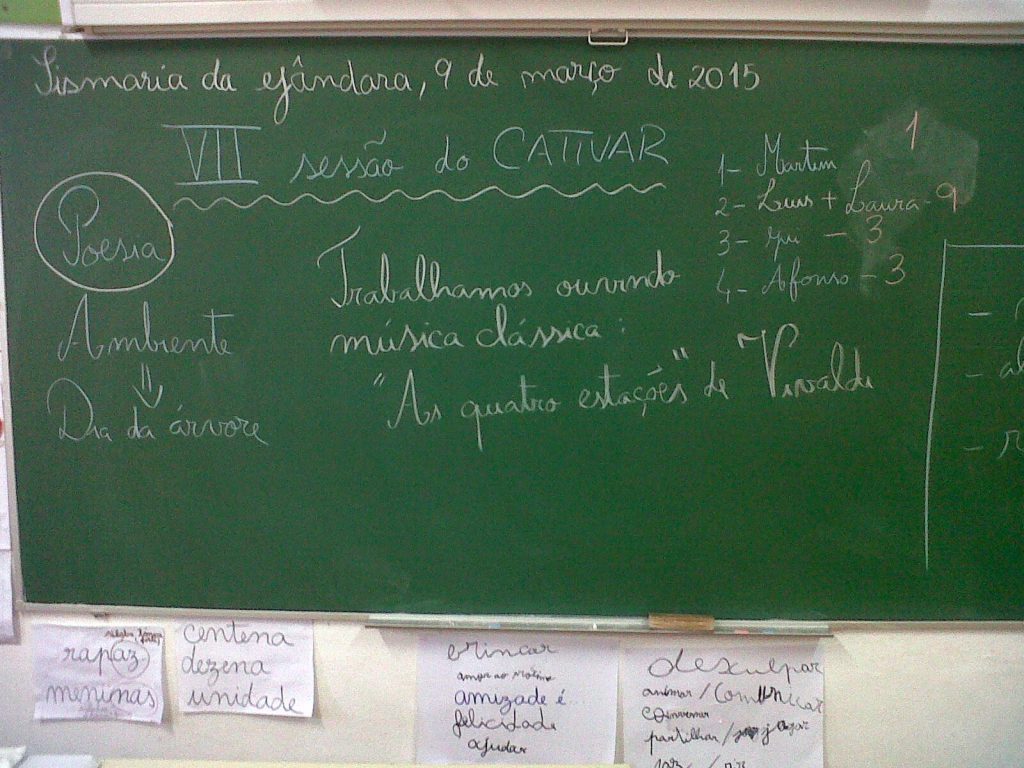 Sismaria da Gândara, 9 de março de 2015
VII sessão do CATIVAR
Poesia
Ambiente
Dia da árvore
Trabalhamos ouvindo
música clássica:
"As quatro estações" de Vivaldi
1
1- Martim
2- Luís + Laura - 9
3- - 3
4- Afonso - 3
rap(az)
meninas
centena
dezena
unidade
brincar
amor ao
amizade é
felicidade
ajudar
desculpar
animar / comunicar
conversar
partilhar / jogar